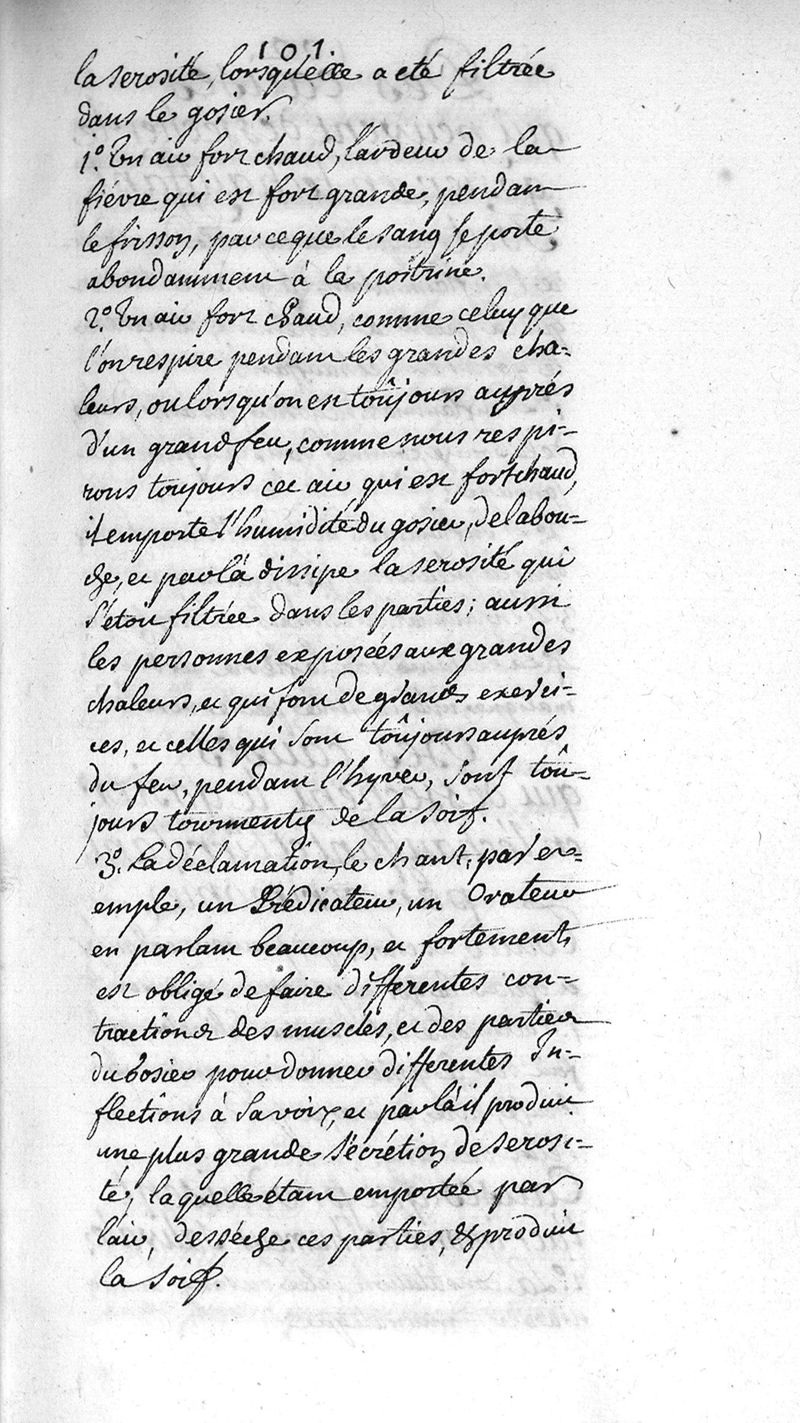 101.
la serosité, lorsqu'elle a eté filtrée
dans le gosier.
1.° Un air fort chaud, l'ardeur de la
fiévre qui est fort grande, pendant
le frisson, parceque le sang se porte
abondamment à la poitrine.
2.° Un air fort chaud, comme celuy que
l'on respire pendant les grandes cha=
leurs, ou lorsqu'on est toûjours auprés
d'un grand feu, comme nous respi=
rons toujours cet air qui est fort chaud,
il emporte l'humidité du gosier, de la bou=
che, et par là dissipe la serosité qui
s'étoit filtrée dans les parties; aussi
les personnes exposées aux grandes
chaleurs, et qui font de grands exerci=
ces, et celles qui sont toûjours auprés
du feu, pendant l'hyver, sont toû=
jours tourmentés de la soif.
3.° La déclamation, le chant; par ex=
emple, un Prédicateur, un Orateur
en parlant beaucoup, et fortement
est obligé de faire differentes con=
tractions des muscles, et des parties
du Gosier pour donner differentes In=
flections à sa voix, et par là il produit
une plus grande sécrétion de serosi=
té, laquelle étant emportée par
l'air, desséche ces parties, & produit
la soif.